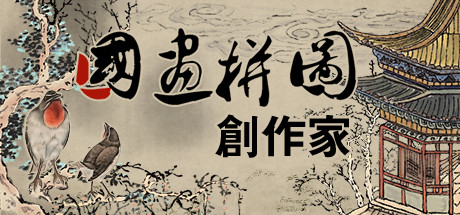 國畫拼圖
創作家